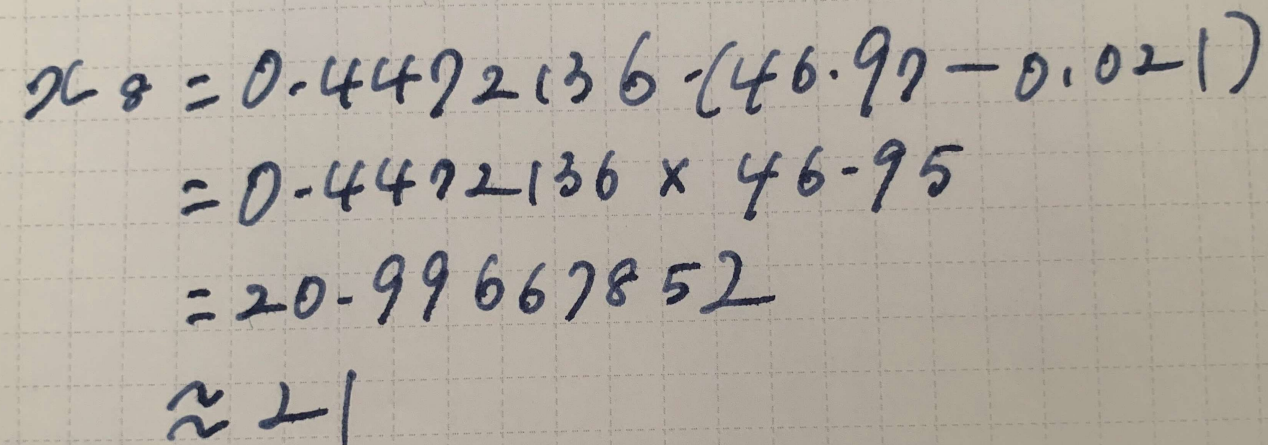 x8 = 0.4472136·(46.97-0.021)
= 0.4472136 × 46.95
= 20.99667852
≈ 21